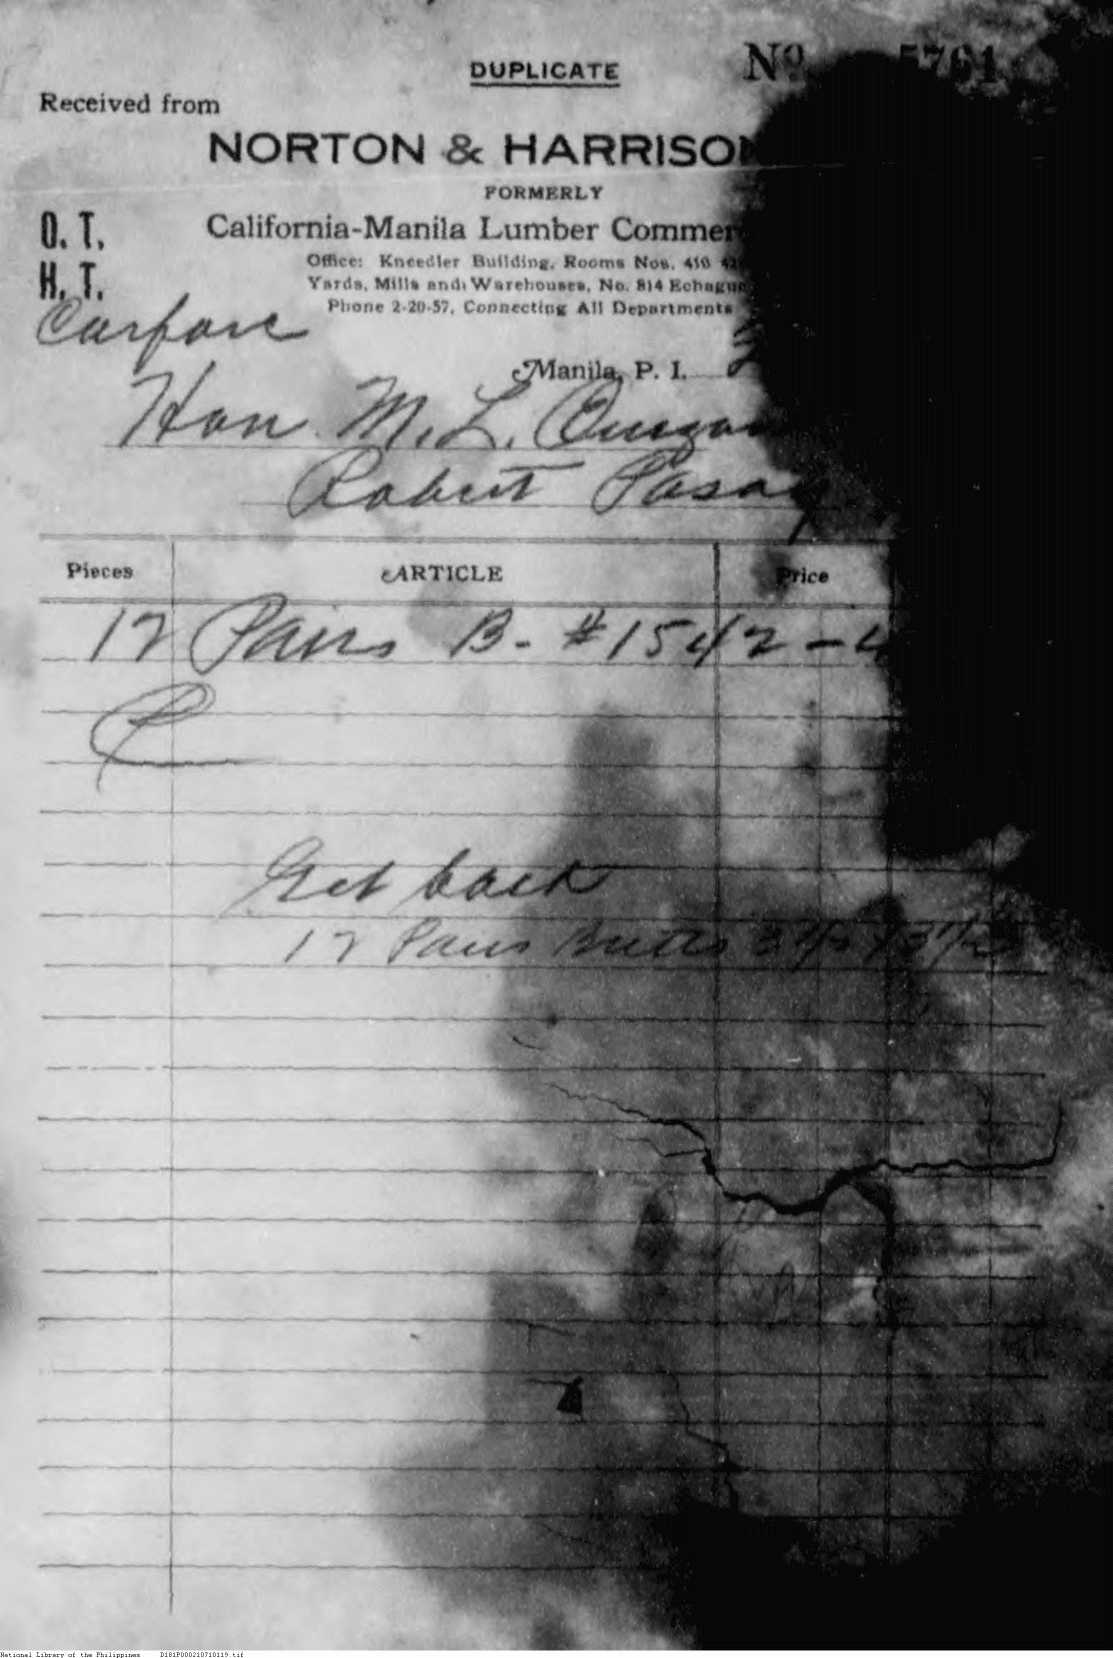 DUPLICATE
Nº 5761
Received from
NORTON & HARRISON
FORMERLY
California-Manila Lumber Commer
O. T.
H. T.
Office: Kneedler Building, Rooms Nos. 410
Yards, Mills and Warehouses, No. 814 Echague
Phone 2-20-57, Connecting All Departments
Carfare
Manila, P. I.
Hon M. L. Quezon
Robert Pasay
Pieces ARTICLE Price
12 Pairs B- #1542-4
Get back
12 Pairs Butts 3½ x 3½
National Library of the Philippines D181P000210710119.tif